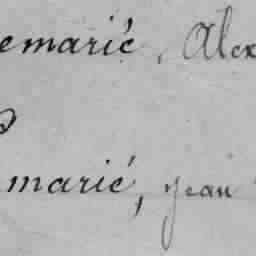 emarié, Alex
marié, jean